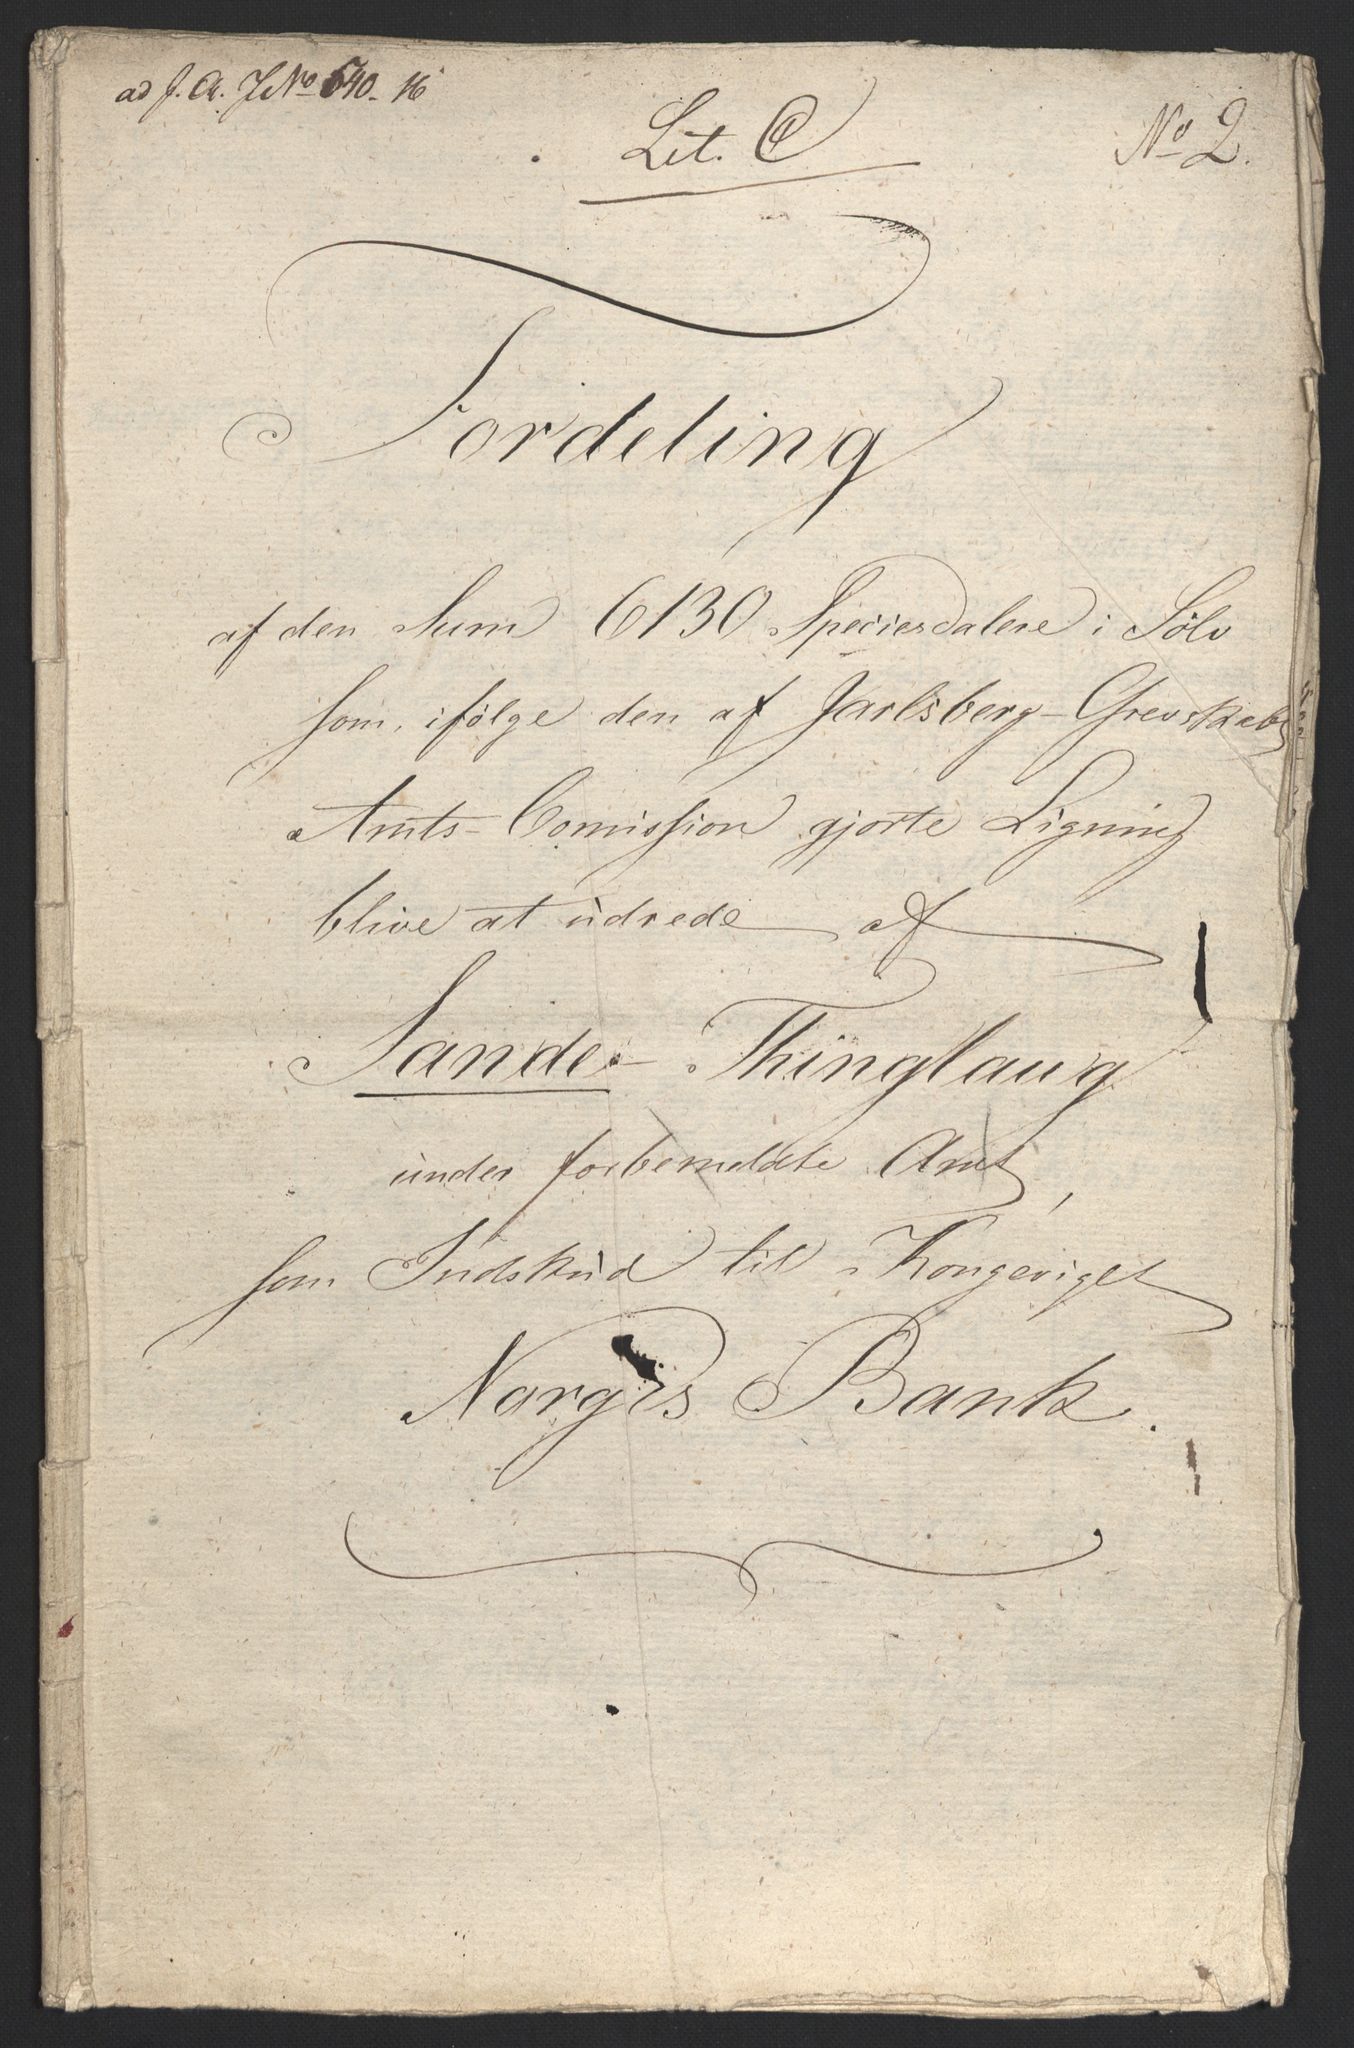 ad J. A. J No 640-16
Lit. C
No 2.
Fordeling
af den Sum 6130 Speciesdalere i Sølv
som, ifølge den af Jarlsberg-Grevskabs
Amts-Comission gjorte Ligning
blive at udrede af
Sande-Thinglaug
under forbemeldte Amt,
som Indskud til Kongeriget
Norges Bank.